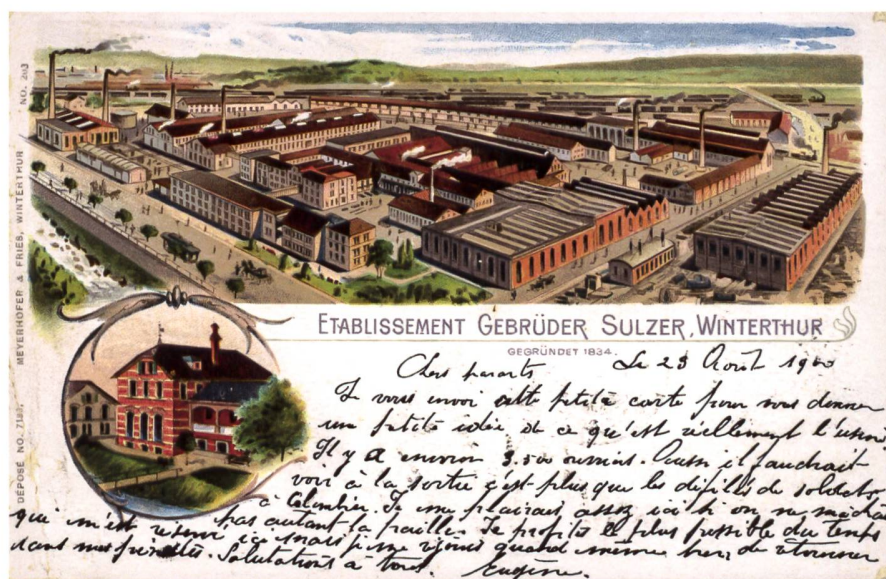 DÉPOSÉ NO. 7182. MEYERHOFER & FRIES, WINTERTHUR NO. 203
ETABLISSEMENT GEBRÜDER SULZER, WINTERTHUR
GEGRÜNDET 1834.
Chers parents Le 23 Août 1900
Je vous envoi cette petite carte pour vous donner
une petite idée de ce qu'est réellement l'usine
Il y a environ 3.500 ouvriers. Aussi il faudrait
voir à la sortie c'est plus que les défilés de soldats
à Colombier. Je me plairais assez ici si on ne
pas autant la paille. Je profite le plus possible du temps
qui m'est réservé ici mais je me réjouis quand même bien de retourner
dans mes pénates. Salutations à tous. Eugène.